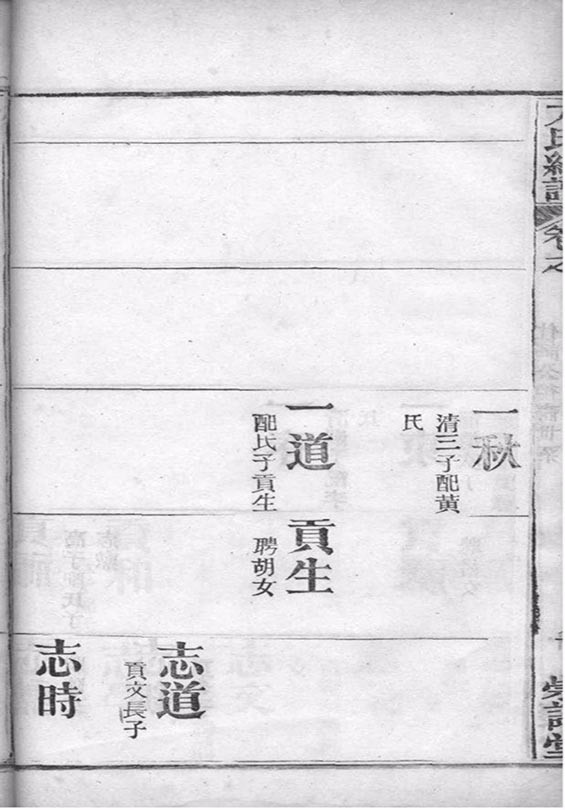 氏總譜
一秋
清三子配黄
氏
一道
配氏子貢生
貢生
聘胡女
志道
貢文長子
志時